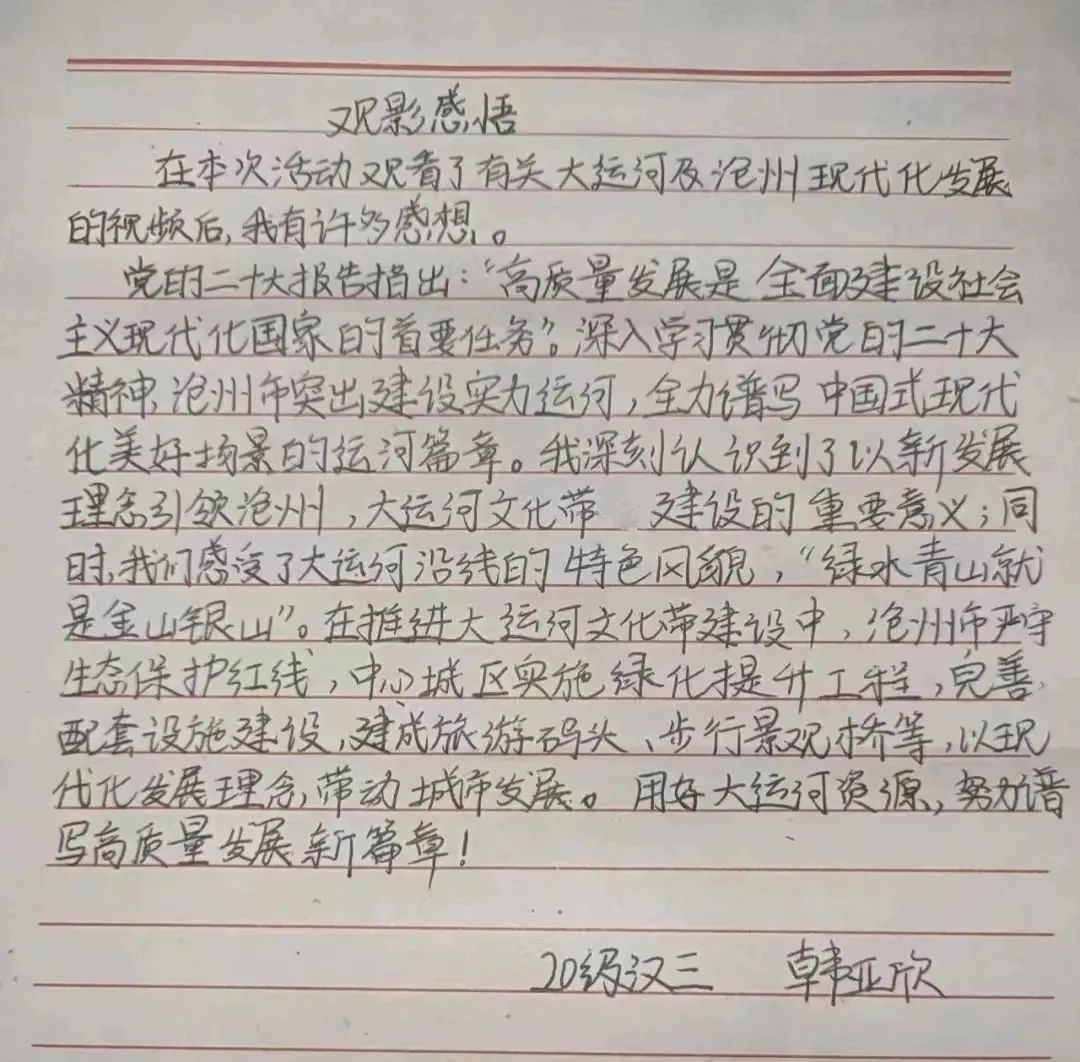 观影感悟
在本次活动观看了有关大运河及沧州现代化发展
的视频后,我有许多感想。
党的二十大报告指出:“高质量发展是全面建设社会
主义现代化国家的首要任务”。深入学习贯彻党的二十大
精神,沧州市突出建设实力运河,全力谱写中国式现代
化美好场景的运河篇章。我深刻认识到了以新发展
理念引领沧州,大运河文化带 建设的重要意义;同
时,我们感受了大运河沿线的特色风貌,“绿水青山就
是金山银山”。在推进大运河文化带建设中,沧州市严守
生态保护红线,中心城区实施绿化提升工程,完善
配套设施建设,建成旅游码头、步行景观桥等,以现
代化发展理念,带动城市发展。用好大运河资源,努力谱
写高质量发展新篇章!
20级汉三 韩亚欣